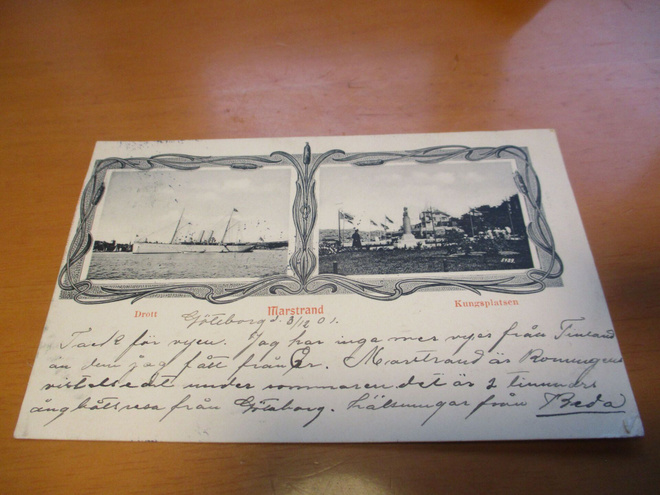 Drott
Marstrand
Kungsplatsen
Göteborg d. 8/12 01.
Tack för vyen. Jag har inga mer vyer från Finland
än dem jag fått från Er. Marstrand är Konungens
vistelse under sommaren det är 2 timmars
ångbåtsresa från Göteborg. Hälsningar från Beda